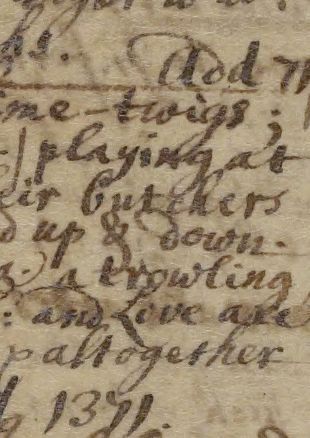 Add
ime-twigs;
playing at
eir butchers
up & down.
a trowling
: and Love are
p altogether
1371.